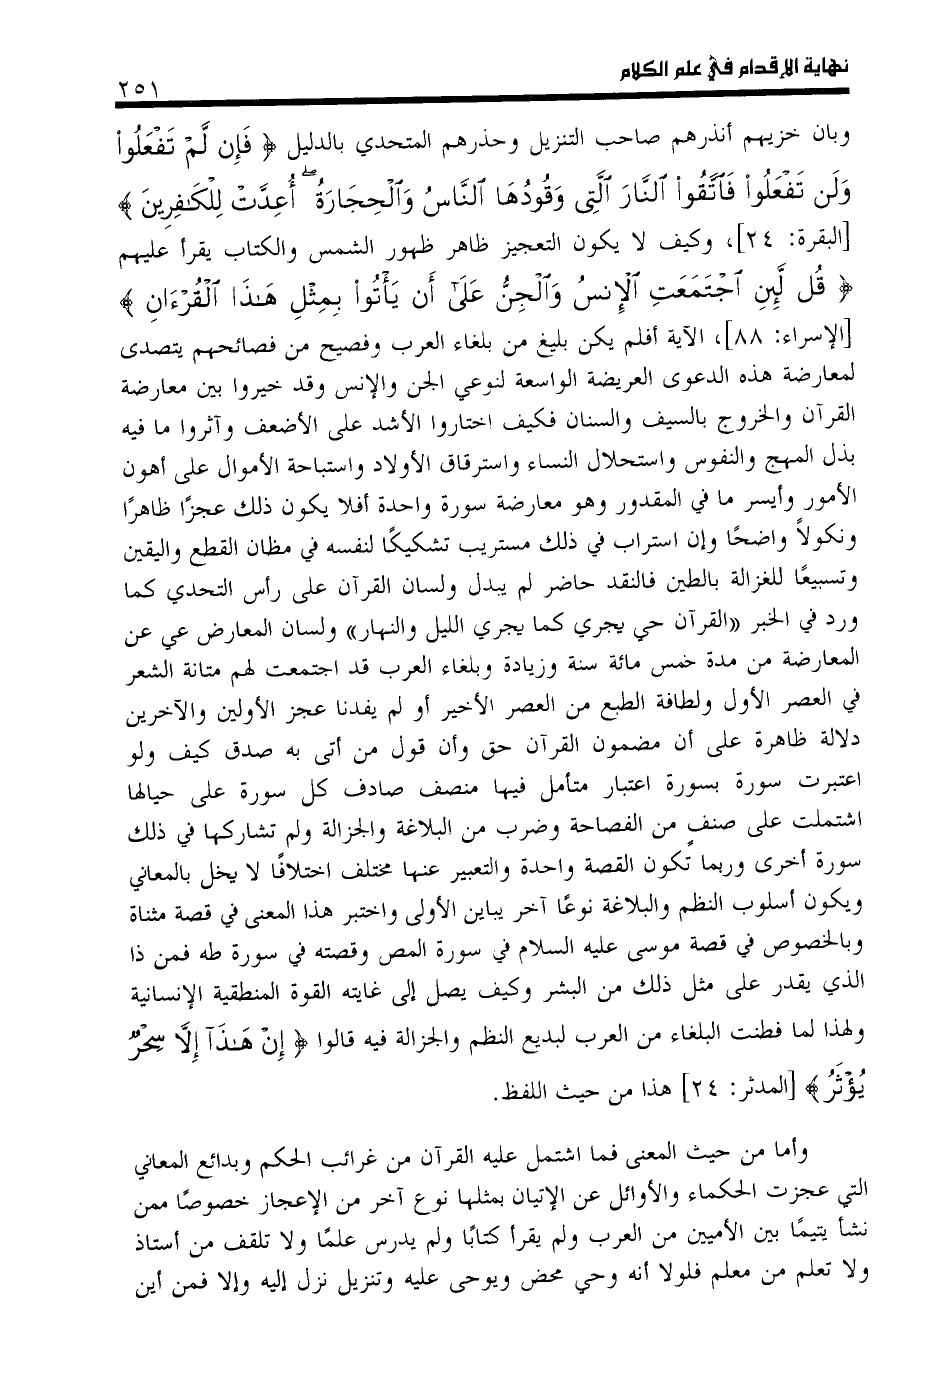 نهاية الإقدام في علم الكلام
٢٥١
وبان خزيهم أنذرهم صاحب التنزيل وحذرهم المتحدي بالدليل ﴿ فَإِن لَّمْ تَفْعَلُواْ
وَلَن تَفْعَلُواْ فَٱتَّقُواْ ٱلنَّارَ ٱلَّتِى وَقُودُهَا ٱلنَّاسُ وَٱلْحِجَارَةُ ۖ أُعِدَّتْ لِلْكَـٰفِرِينَ ﴾
[البقرة: ٢٤]، وكيف لا يكون التعجيز ظاهر ظهور الشمس والكتاب يقرأ عليهم
﴿ قُل لَّئِنِ ٱجْتَمَعَتِ ٱلْإِنسُ وَٱلْجِنُّ عَلَىٰٓ أَن يَأْتُواْ بِمِثْلِ هَـٰذَا ٱلْقُرْءَانِ ﴾
[الإسراء: ٨٨]، الآية أفلم يكن بليغ من بلغاء العرب وفصيح من فصائحهم يتصدى
لمعارضة هذه الدعوى العريضة الواسعة لنوعي الجن والإنس وقد خيروا بين معارضة
القرآن والخروج بالسيف والسنان فكيف اختاروا الأشد على الأضعف وآثروا ما فيه
بذل المهج والنفوس واستحلال النساء واسترقاق الأولاد واستباحة الأموال على أهون
الأمور وأيسر ما في المقدور وهو معارضة سورة واحدة أفلا يكون ذلك عجزًا ظاهرًا
ونكولاً واضحًا وإن استراب في ذلك مستريب تشكيكًا لنفسه في مظان القطع واليقين
وتسبيعًا للغزالة بالطين فالنقد حاضر لم يبدل ولسان القرآن على رأس التحدي كما
ورد في الخبر «القرآن حي يجري كما يجري الليل والنهار» ولسان المعارض عي عن
المعارضة من مدة خمس مائة سنة وزيادة وبلغاء العرب قد اجتمعت لهم متانة الشعر
في العصر الأول ولطافة الطبع من العصر الأخير أو لم يفدنا عجز الأولين والآخرين
دلالة ظاهرة على أن مضمون القرآن حق وأن قول من أتى به صدق كيف ولو
اعتبرت سورة بسورة اعتبار متأمل فيها منصف صادف كل سورة على حيالها
اشتملت على صنفٍ من الفصاحة وضرب من البلاغة والجزالة ولم تشاركها في ذلك
سورة أخرى وربما تكون القصة واحدة والتعبير عنها مختلف اختلافًا لا يخل بالمعاني
ويكون أسلوب النظم والبلاغة نوعًا آخر يباين الأولى واختبر هذا المعنى في قصة مثناة
وبالخصوص في قصة موسى عليه السلام في سورة المص وقصته في سورة طه فمن ذا
الذي يقدر على مثل ذلك من البشر وكيف يصل إلى غايته القوة المنطقية الإنسانية
ولهذا لما فطنت البلغاء من العرب لبديع النظم والجزالة فيه قالوا ﴿ إِنْ هَـٰذَآ إِلَّا سِحْرٌ
يُؤْثَرُ ﴾ [المدثر: ٢٤] هذا من حيث اللفظ.
وأما من حيث المعنى فما اشتمل عليه القرآن من غرائب الحكم وبدائع المعاني
التي عجزت الحكماء والأوائل عن الإتيان بمثلها نوع آخر من الإعجاز خصوصًا ممن
نشأ يتيمًا بين الأميين من العرب ولم يقرأ كتابًا ولم يدرس علمًا ولا تلقف من أستاذ
ولا تعلم من معلم فلولا أنه وحي محض ويوحى عليه وتنزيل نزل إليه وإلا فمن أين